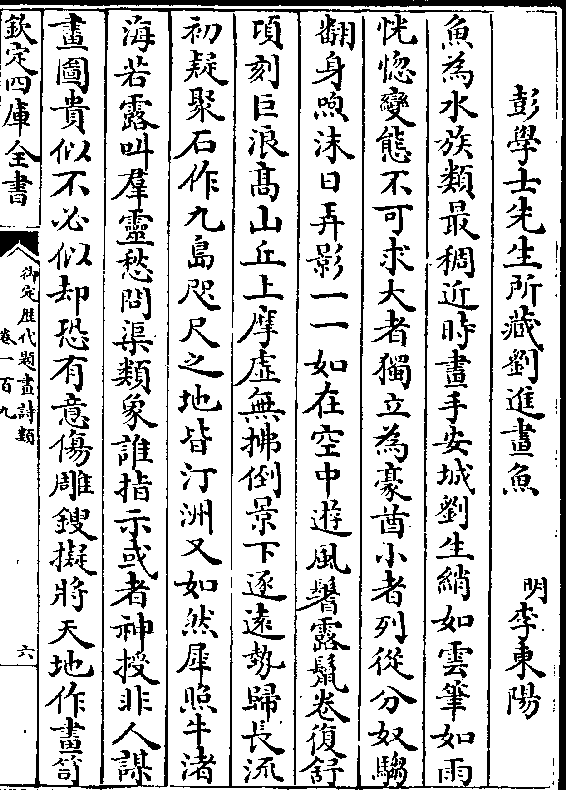 彭學士先生所藏劉進畫魚　明李東陽
魚為水族類最稠近時畫手安城劉生綃如雲筆如雨
恍惚變態不可求大者獨立為豪酋小者列從分奴騶
翻身喣沫日弄影一一如在空中遊風鬐露鬛卷復舒
項刻巨浪髙山丘上摩虚無拂倒景下逐逺勢歸長流
初疑聚石作九島咫尺之地皆汀洲又如然犀照牛渚
海若露叫羣靈愁問渠類象誰指示或者神授非人謀
畫圖貴似不必似却恐有意傷雕鎪擬將天地作畫笥
欽定四庫全書
御定歴代題畫詩類
卷一百九
六